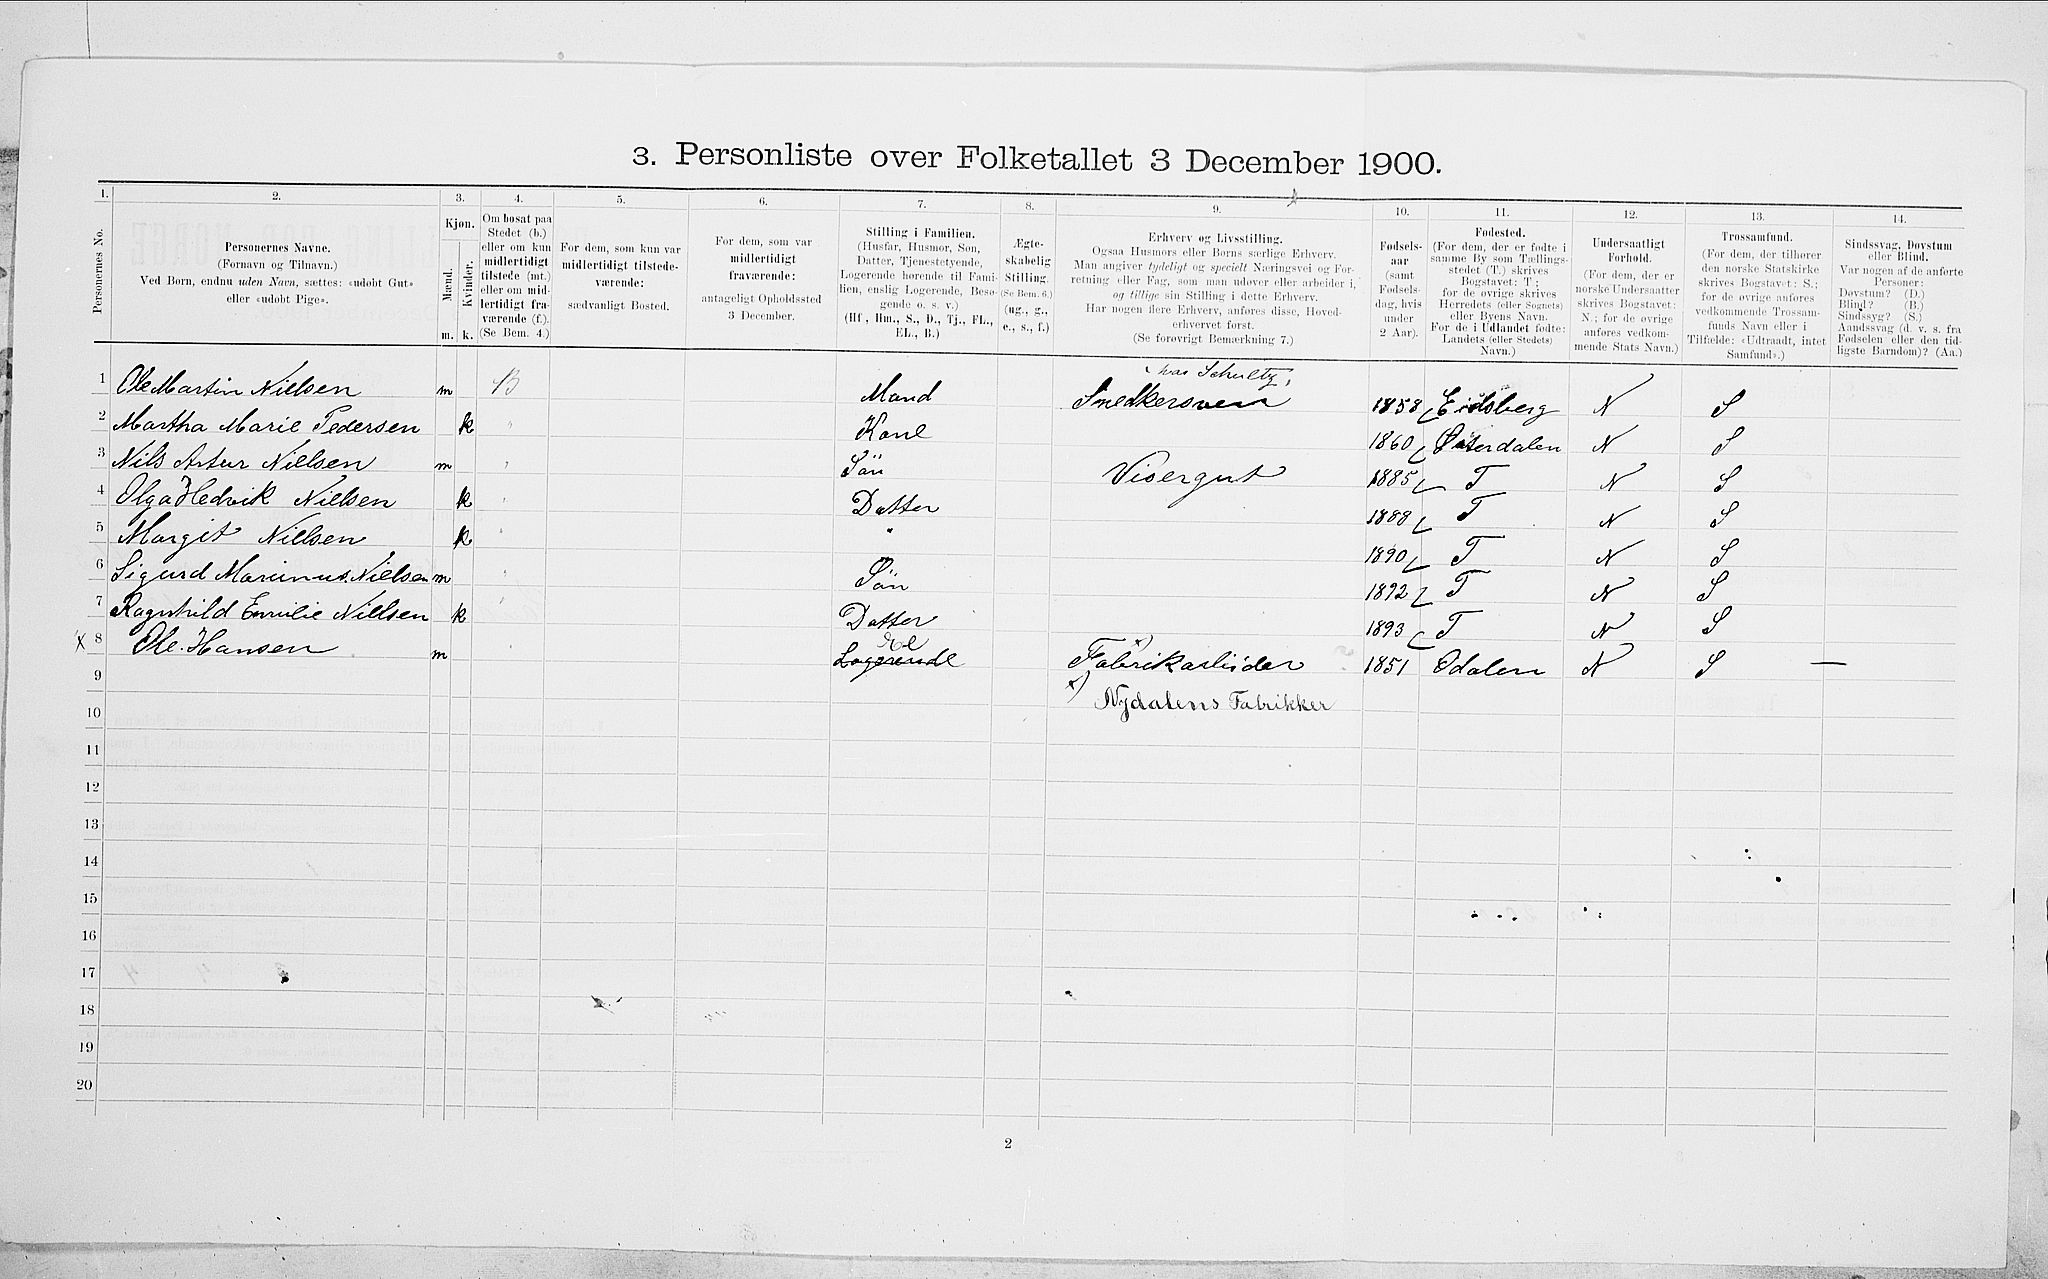 3. Personliste over Folketallet 3 December 1900.
1. 2. 3. 4. 5. 6. 7. 8. 9. 10. 11. 12. 13. 14.
Personernes No.
Personernes Navne.
(Fornavn og Tilnavn.)
Ved Børn, endnu uden Navn, sættes: «udøbt Gut»
eller «udøbt Pige».
Kjøn.
Mænd.
Kvinder.
m. k.
Om bosat paa
Stedet (b.)
eller om kun
midlertidigt
tilstede (mt.)
eller om mid-
lertidigt fra-
værende (f.).
(Se Bem. 4.)
For dem, som kun var
midlertidigt tilstede-
værende:
sædvanligt Bosted.
For dem, som var
midlertidigt
fraværende:
antageligt Opholdssted
3 December.
Stilling i Familien.
(Husfar, Husmor, Søn,
Datter, Tjenestetyende,
Logerende hørende til Fami-
lien, enslig Logerende, Besø-
gende o. s. v.)
(Hf., Hm., S., D., Tj., FL.,
EL., B.)
Ægte-
skabelig
Stilling.
(Se Bem. 6.)
(ug., g.,
e., s., f.)
Erhverv og Livsstilling.
Ogsaa Husmors eller Børns særlige Erhverv.
Man angiver tydeligt og specielt Næringsvei og For-
retning eller Fag, som man udøver eller arbeider i,
og tillige sin Stilling i dette Erhverv.
Har nogen flere Erhverv, anføres disse, Hoved-
erhvervet først.
(Se forøvrigt Bemærkning 7.)
Fødsels-
aar
(samt
Fødsels-
dag, hvis
under
2 Aar).
Fødested.
(For dem, der er fødte i
samme By som Tællings-
stedet (T.) skrives
Bogstavet: T.;
for de øvrige skrives
Herredets (eller Sognets)
eller Byens Navn.
For de i Udlandet fødte:
Landets (eller Stedets)
Navn.)
Undersaatligt
Forhold.
(For dem, der er
norske Undersaatter
skrives Bogstavet:
N.; for de øvrige
anføres vedkom-
mende Stats Navn.)
Trossamfund.
(For dem, der tilhører
den norske Statskirke
skrives Bogstavet: S.;
for de øvrige anføres
vedkommende Trossam-
funds Navn eller i
Tilfælde: «Udtraadt, intet
Samfund».)
Sindssvag, Døvstum
eller Blind.
Var nogen af de anførte
Personer:
Døvstum? (D.)
Blind? (B.)
Sindssyg? (S.)
Aandssvag (d. v. s. fra
Fødselen eller den tid-
ligste Barndom)? (Aa.)
hos Schultz,
1 Ole Martin Nielsen m B Mand Smedkersven 1858 Eidsberg N S
2 Martha Marie Pedersen k " Kone 1860 Østerdalen N S
3 Nils Artur Nielsen m " Søn Visergut 1885 T N S
4 Olga Hedvik Nielsen k " Datter 1888 T N S
5 Margit Nielsen k " " 1890 T N S
6 Sigurd Marinus Nielsen m " Søn 1892 T N S
7 Ragnhild Emilie Nielsen k " Datter 1893 T N S
El
x 8 Ole Hansen m " Logerende Fabrikarbeider x) 1851 Odalen N S —
9
x) Nydalens Fabrikker
10
11
12
13
14
15
16
17
18
19
20
2